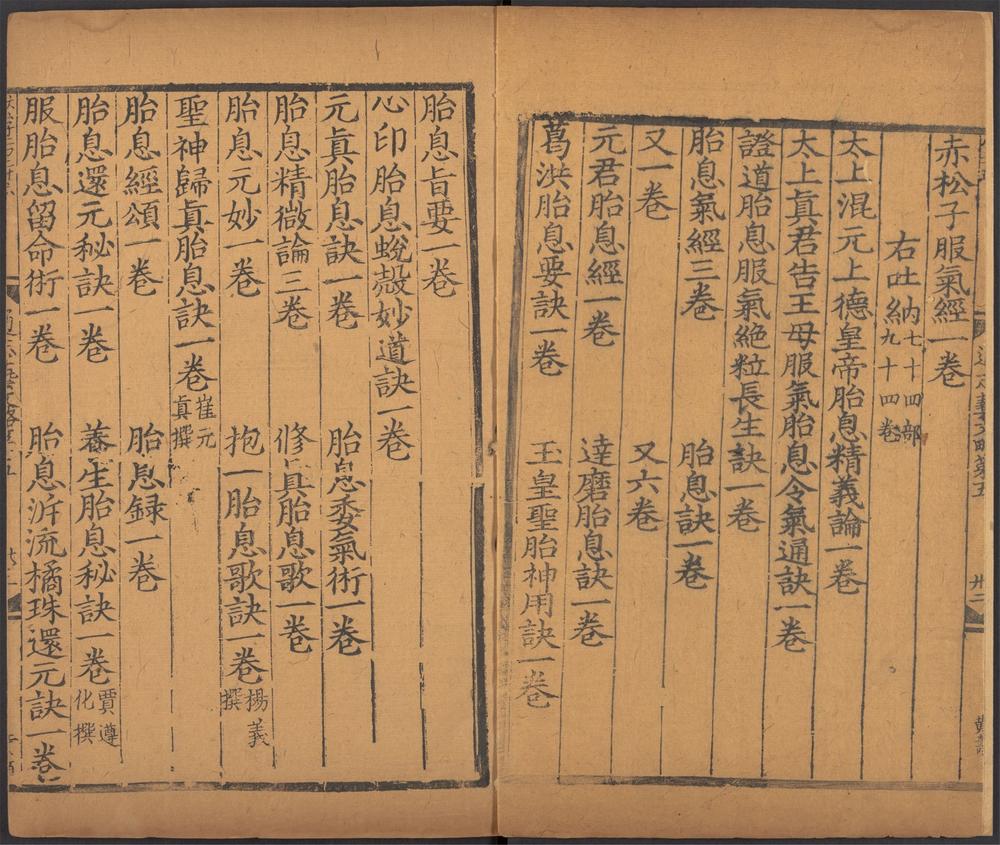 赤松子服氣經一卷
右吐納七十四部九十四卷
太上混元上德皇帝胎息精義論一卷
太上眞君告王母服氣胎息令氣通訣一卷
證道胎息服氣絶粒長生訣一卷
胎息氣經三卷　胎息訣一卷
又一卷　又六卷
元君胎息經一卷　達磨胎息訣一卷
葛洪胎息要訣一卷　玉皇聖胎神用訣一卷
胎息旨要一卷
心印胎息蛻殼妙道訣一卷
元眞胎息訣一卷　胎息委氣術一卷
胎息精微論三卷　修眞胎息歌一卷
胎息元妙一卷　抱一胎息歌訣一卷楊義撰
聖神歸眞胎息訣一卷崔元眞撰
胎息經頌一卷　胎息録一卷
胎息還元秘訣一卷　養生胎息秘訣一卷賈遵化撰
服胎息留命術一卷　胎息泝流橘珠還元訣一卷